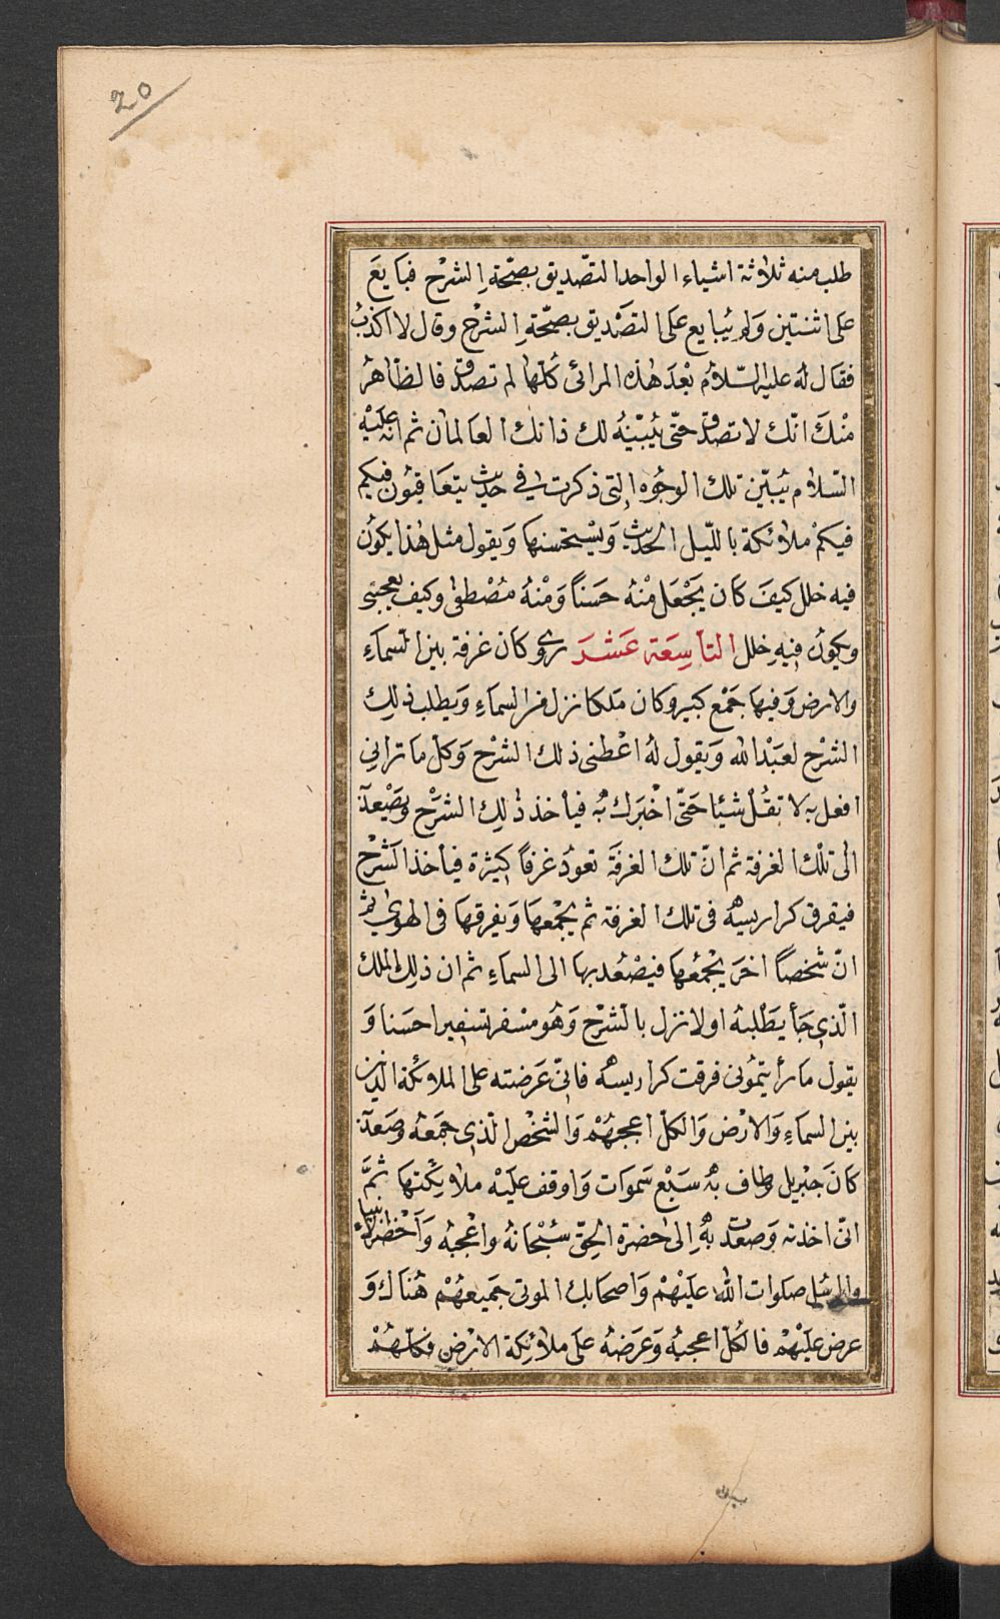 20
طلب منه ثلاثة اشياء الواحد التصديق بصحّة الشرح فبايع
على اثنتين ولم يبايع على التصديق بصحّة الشرح وقال لا اكذب
فقال له عليه السّلام بعد هذه المرائى كلّها لم تصدق فالظاهر
منك انّك لا تصدق حتّى يبيّنه لك ذانك العالمان ثم انه عليه
السّلام يبيّن تلك الوجوه التى ذكرت فى حديث يتعاقبون فيكم
فيكم ملائكة بالليل الحديث ويستحسنها ويقول مثل هذا يكون
فيه خلل كيف كان يجعل منه حسنًا ومنه مصطفى وكيف يعجبنى
ويكون فيه خلل التاسعة عشر روى كان غرفة بين السماء
والارض وفيها جمع كبير وكان ملكا نزل من السماء ويطلب ذلك
الشرح لعبد الله ويقول له اعطنى ذلك الشرح وكل ما ترانى
افعل به لا تقل شيئا حتّى اخبرك به فياخذ ذلك الشرح ويصعد
الى تلك الغرفة ثم انّ تلك الغرفة تعود غرفًا كثيرة فياخذ الشرح
فيفرق كراريسه فى تلك الغرفة ثم يجمعها ويفرقها فى الهوى ثم
انّ شخصًا اخر يجمعها فيصعد بها الى السماء ثم ان ذلك الملك
الّذى جا يطلبه اولا نزل بالشرح وهو مسفر تسفيرا حسنا و
يقول ما رأيتمونى فرقت كراريسه فانّى عرضته على الملائكة الذين
بين السماء والارض والكلّ اعجبهم والشخص الّذى جمعه وصعد
كان جبريل وطاف به سبع سموات واوقف عليه ملائكتها ثمّ
انّى اخذته وصعدت به إلى حضرة الحقّ سبحانه واعجبه واحضر الانبياء
والرسل صلوات الله عليهم واصحابك الموتى جميعهم هناك و
عرض عليهم فالكلّ اعجبه وعرضه على ملائكة الارض فكلّهم